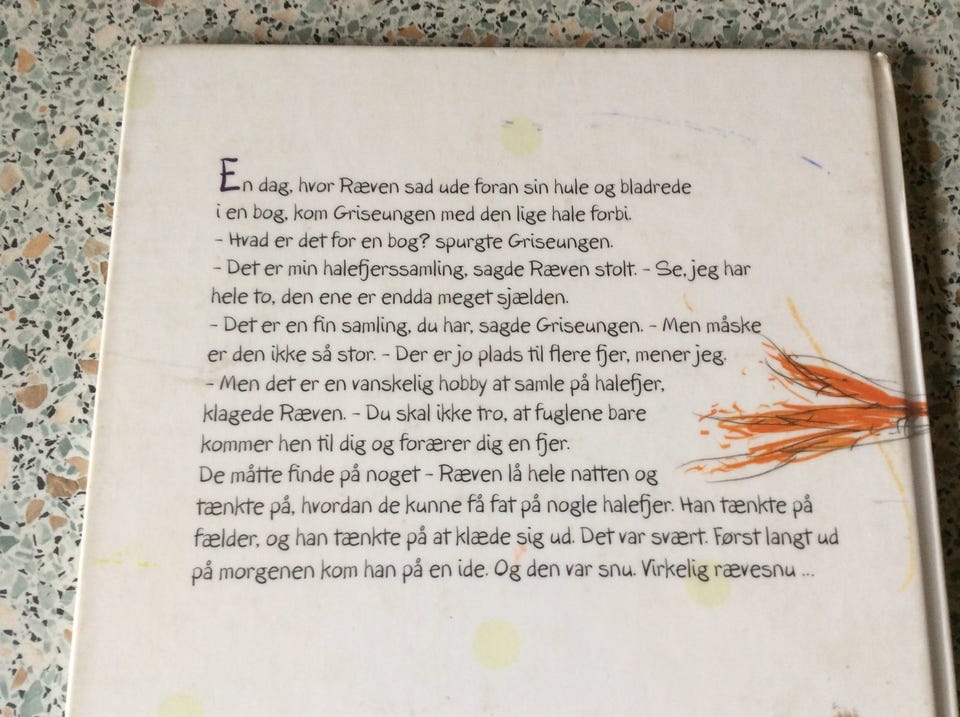 En dag, hvor Ræven sad ude foran sin hule og bladrede
i en bog, kom Griseungen med den lige hale forbi.
- Hvad er det for en bog? spurgte Griseungen.
- Det er min halefjerssamling, sagde Ræven stolt. - Se, jeg har
hele to, den ene er endda meget sjælden.
- Det er en fin samling, du har, sagde Griseungen. - Men måske
er den ikke så stor. - Der er jo plads til flere fjer, mener jeg.
- Men det er en vanskelig hobby at samle på halefjer,
klagede Ræven. - Du skal ikke tro, at fuglene bare
kommer hen til dig og forærer dig en fjer.
De måtte finde på noget - Ræven lå hele natten og
tænkte på, hvordan de kunne få fat på nogle halefjer. Han tænkte på
fælder, og han tænkte på at klæde sig ud. Det var svært. Først langt ud
på morgenen kom han på en ide. Og den var snu. Virkelig rævesnu ...